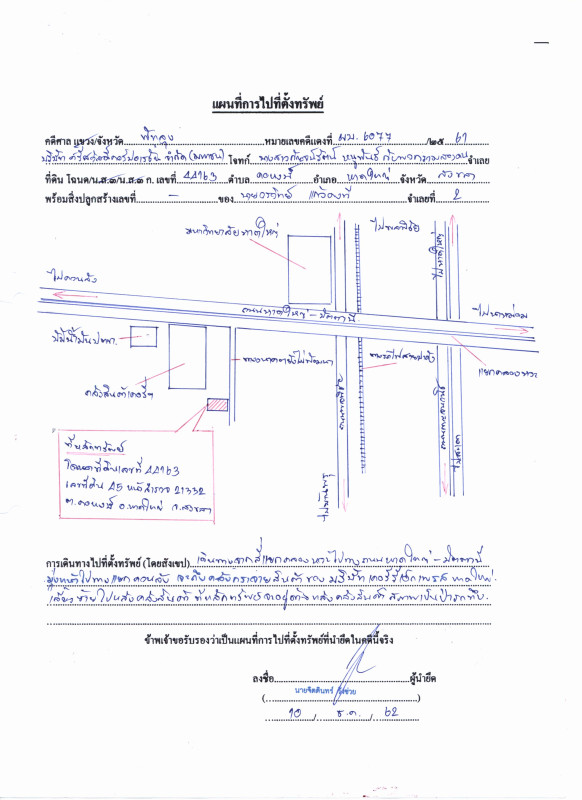 แผนที่การไปที่ตั้งทรัพย์
คดีศาล แขวง/จังหวัด พัทลุง หมายเลขคดีแดงที่ ผบ. 6077 /๒๕ 61
บริษัท ศรีสวัสดิ์คอร์ปอเรชั่น จำกัด (มหาชน) โจทก์ นางสาวกัญจน์รัตน์ หนูพันธ์ กับพวก จำเลย
ที่ดิน โฉนด/น.ส.๓/น.ส.๓ ก. เลขที่ 44163 ตำบล คอหงส์ อำเภอ หาดใหญ่ จังหวัด สงขลา
พร้อมสิ่งปลูกสร้างเลขที่ - ของ จำเลยที่ 2
มหาวิทยาลัยหาดใหญ่
ไปควนลัง
ไปหาดใหญ่
ถนนหาดใหญ่ - ปัตตานี
ปั๊มน้ำมันปตท.
คลังสินค้าเคอรี่ฯ
ทางรถไฟ
แยกคลองหวะ
ที่หลักทรัพย์
โฉนดที่ดินเลขที่ 44163
เลขที่ดิน 45 หน้าสำรวจ 21332
ต.คอหงส์ อ.หาดใหญ่ จ.สงขลา
การเดินทางไปที่ตั้งทรัพย์ (โดยสังเขป) เดินทางจากสี่แยกคลองหวะไปทางถนนหาดใหญ่ - ปัตตานี
มุ่งหน้าไปทางแยกควนลัง จะถึงคลังกระจายสินค้าของ บริษัท เคอร์รี่เอ็กเพรส หาดใหญ่
เลี้ยวซ้ายไปหลังคลังสินค้า ที่หลักทรัพย์จะอยู่ด้านหลังคลังสินค้า สภาพเป็นป่ารกทึบ
ข้าพเจ้าขอรับรองว่าเป็นแผนที่การไปที่ตั้งทรัพย์ที่นำยึดในคดีนี้จริง
ลงชื่อ ผู้นำยึด
10 / ธ.ค. / 62